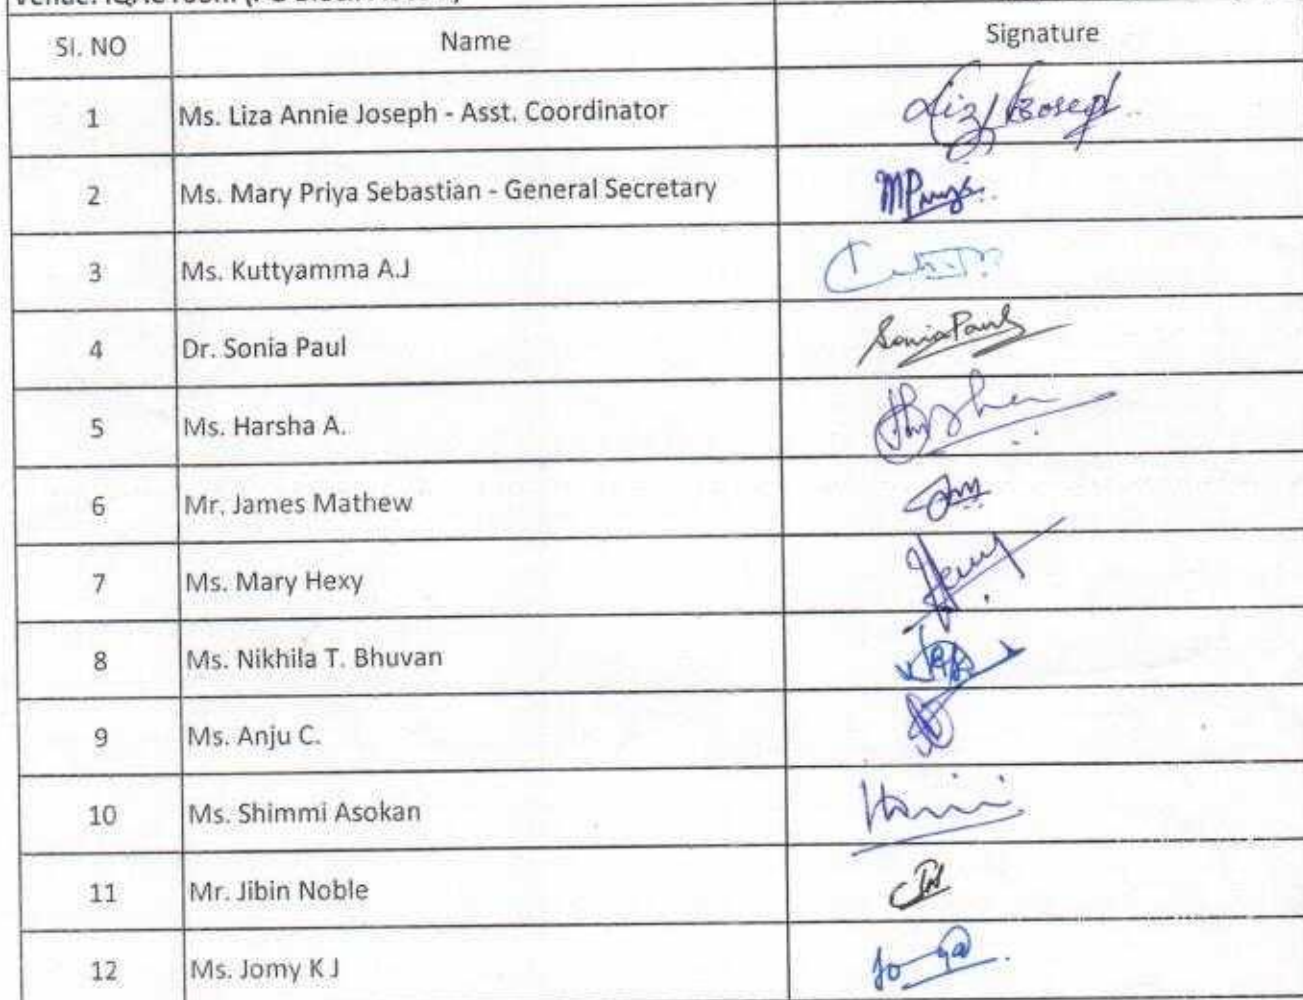 Venue: IQAC room (PG Block
Sl. NO Name Signature
1 Ms. Liza Annie Joseph - Asst. Coordinator
2 Ms. Mary Priya Sebastian - General Secretary
3 Ms. Kuttyamma A.J
4 Dr. Sonia Paul SoniaPaul
5 Ms. Harsha A.
6 Mr. James Mathew
7 Ms. Mary Hexy
8 Ms. Nikhila T. Bhuvan
9 Ms. Anju C.
10 Ms. Shimmi Asokan
11 Mr. Jibin Noble
12 Ms. Jomy K J